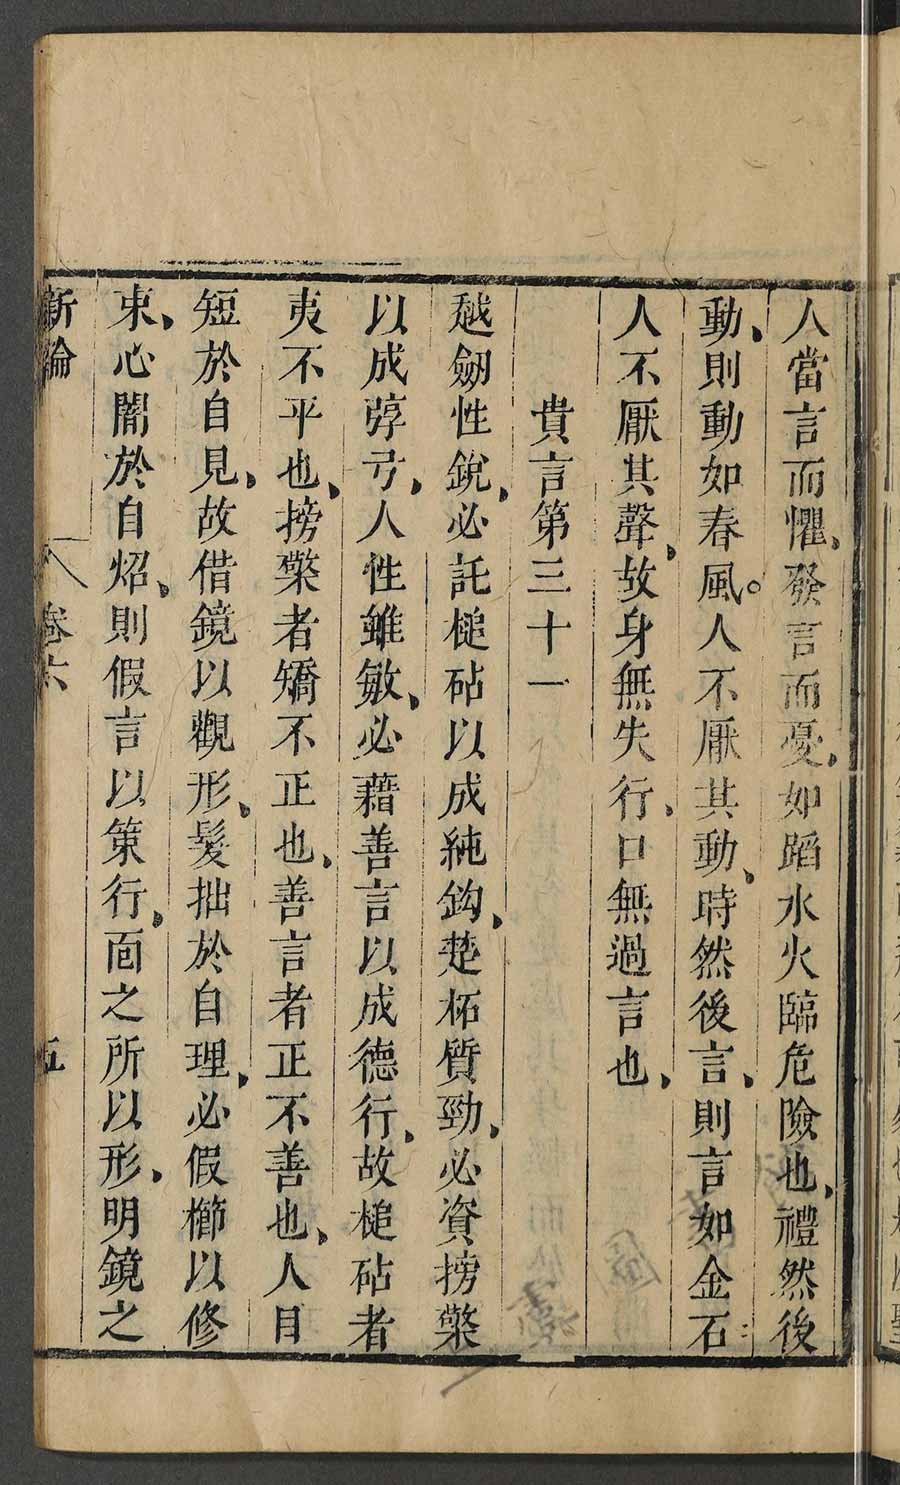 人當言而懼、發言而憂、如蹈水火臨危險也、禮然後
動、則動如春風。人不厭其動、時然後言、則言如金石
人不厭其聲、故身無失行、口無過言也、
貴言第三十一
越劔性銳、必託槌砧以成純鈎、楚柘質勁、必資搒檠
以成弴弓、人性雖敏、必藉善言以成德行、故槌砧者
夷不平也、搒檠者矯不正也、善言者正不善也、人目
短於自見、故借鏡以觀形、髮拙於自理、必假櫛以修
束、心闇於自炤、則假言以策行、面之所以形、明鏡之
新論 卷六 五